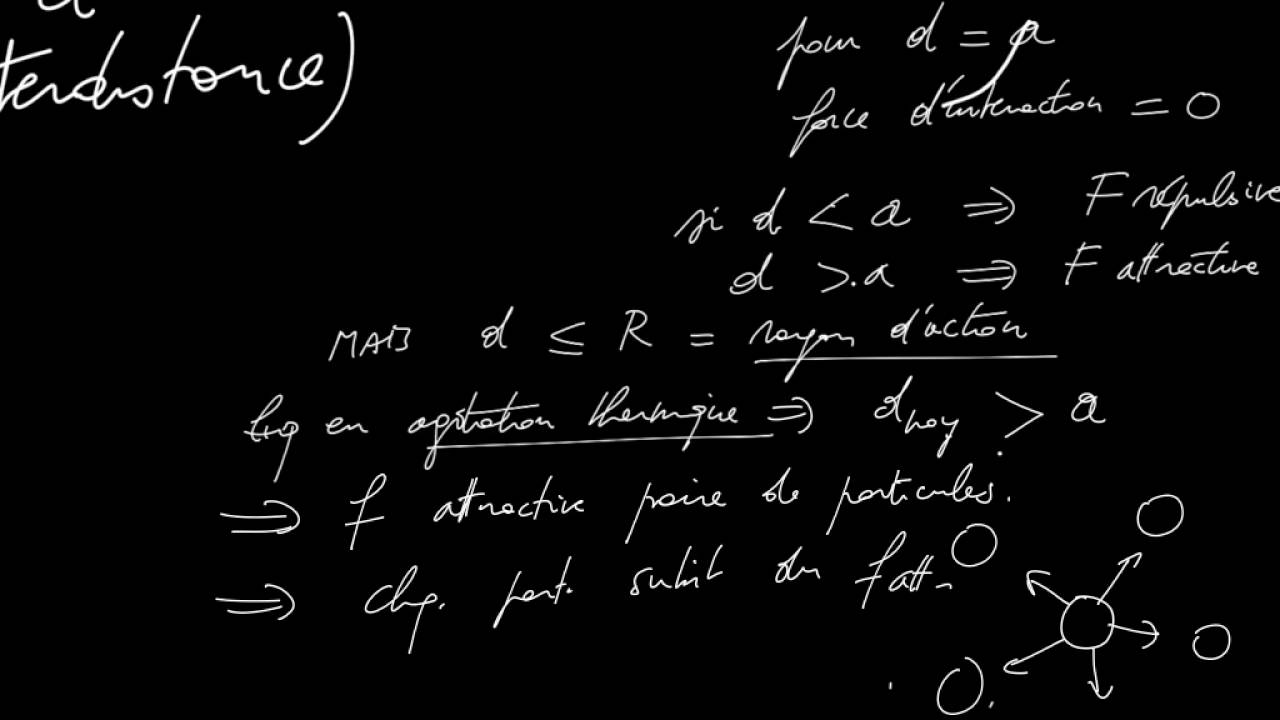 a
terdistance)
pour d = a
force d'interaction = 0
si d < a ⇒ F répulsive
d > a ⇒ F attractive
MAIS d ≤ R = rayon d'action
liq en agitation thermique ⇒ dmoy > a
⇒ f attractive paire de particules.
⇒ chq. part. subit des f att